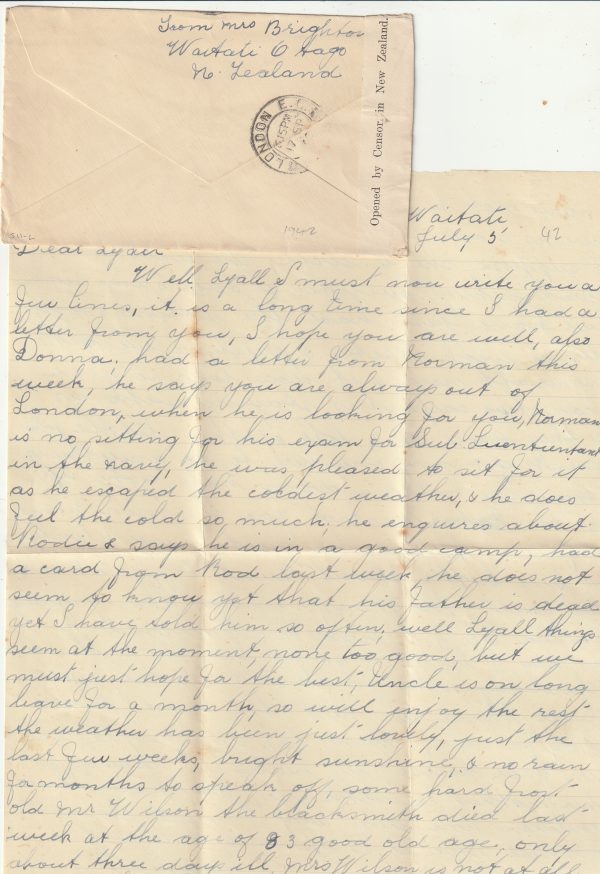 From Mrs Brighton
Waitati Otago
N. Zealand
Opened by Censor in New Zealand.
LONDON E.C.
15PM
17 SP
1942
Waitati
July 5 42
Dear Lyall
Well Lyall I must now write you a
few lines, it is a long time since I had a
letter from you, I hope you are well, also
Donna. had a letter from Norman this
week, he says you are always out of
London, when he is looking for you, Norman
is no sitting for his exam for Sub Luentuntant
in the navy, he was pleased to sit for it
as he escaped the coldest weather, & he does
feel the cold so much, he enquires about
Rodie & says he is in a good camp, had
a card from Rod last week, he does not
seem to know yet that his Father is dead
yet I have told him so often. well Lyall things
seem at the moment, none too good, but we
must just hope for the best, Uncle is on long
leave for a month, so will enjoy the rest
the weather has been just lovely, just the
last few weeks, bright sunshine, & no rain
for months to speak off, some hard frost
old Mr Wilson the blacksmith died last
week at the age of 83 good old age, only
about three days ill, Mrs Wilson is not at all